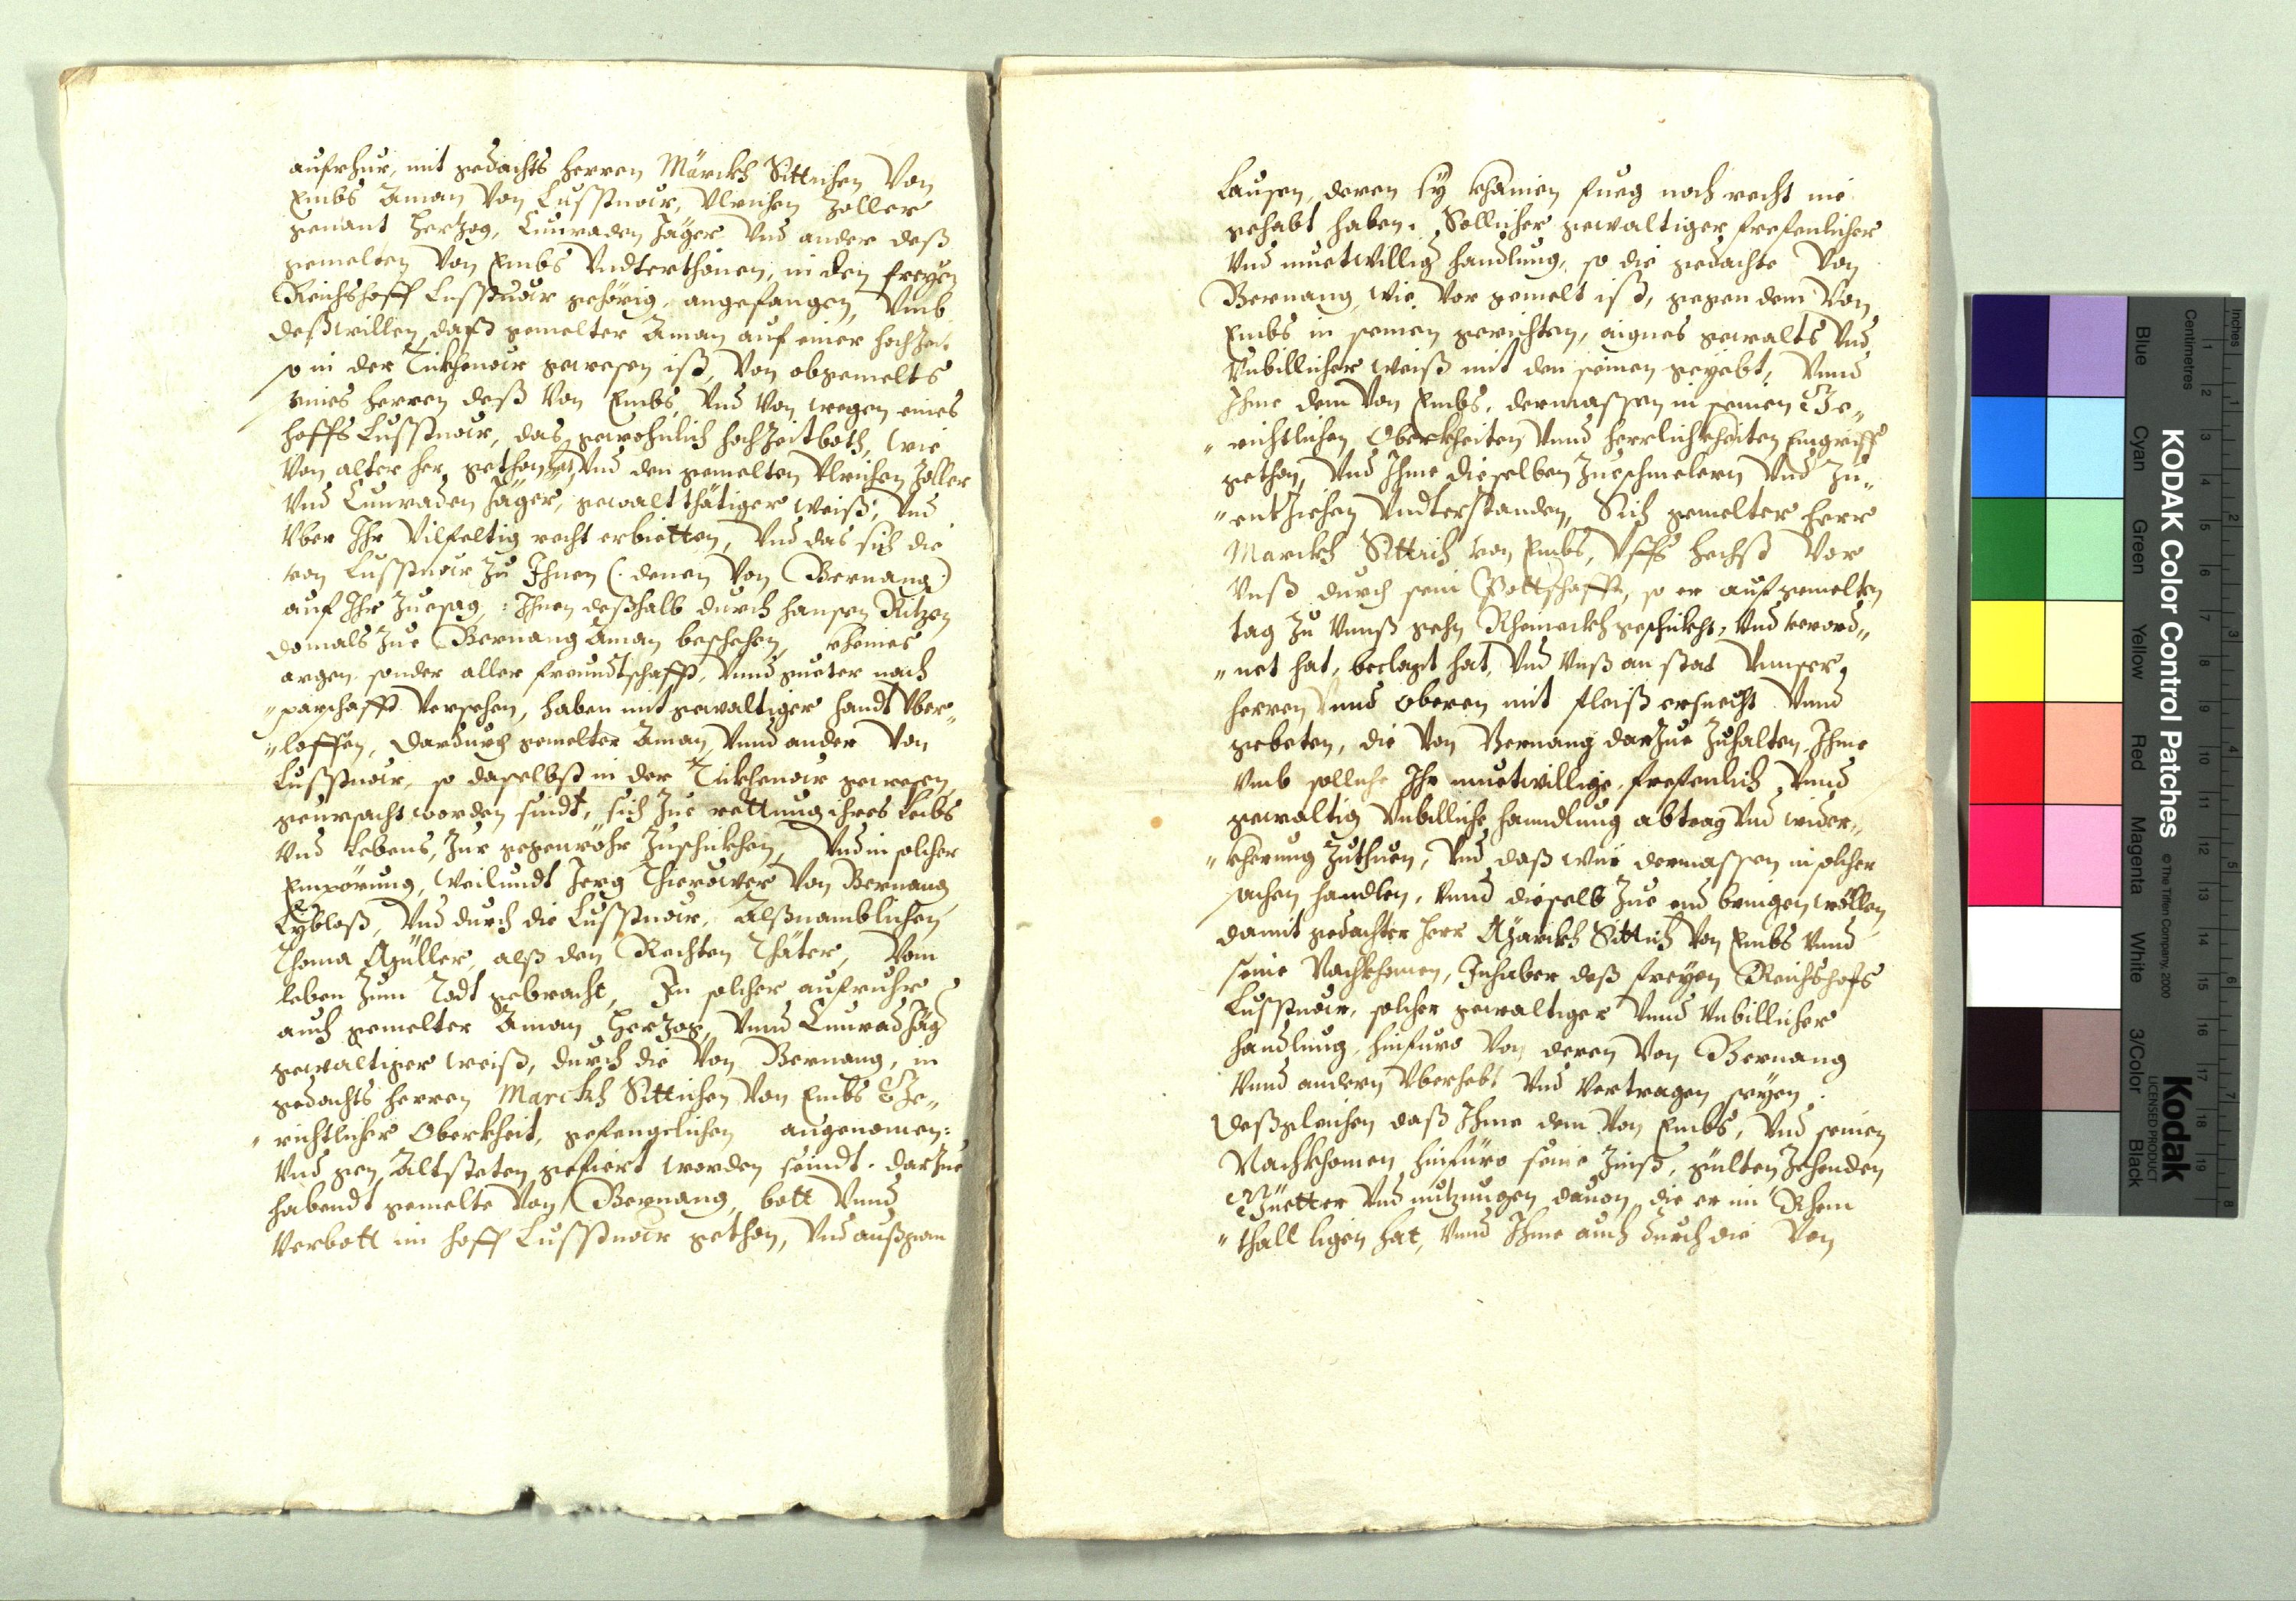 aufrhur, mit gedachts herren Märckh Sittichen Von
Embs Aman Von Lusstnow, Vlrichen Zoller
genant Hertzog, Cunraden Jäger Vnd ander deß
gemelten Von Embs Vndterthonen, in den freyen
Reichshoff Lusstnow gehörig, angefangen, Vmb
deßwillen, daß gemelter Aman auf einer hochzeit
so in der Tickhenow gewesen ist, Von obgemelts
eines herren deß Von Embs, Vnd Von wegen eines
hoffs Lusstnow, das gewohnlich hochzeitboth, wie
Von alter her, gethon hat, Vnd den gemelten Vlrichen Zoller
Vnd Cunraden Jäger, gewaltthätiger weiß, Vnd
Vber Ihr Vilfeltig recht erbietten, Vnd das sich die
von Lusstnow zu Ihnen (: denen Von Bernang :)
auf Ihr Zuesag, : Ihnen deßhalb durch hansen Ritzen
domals Zue Bernang Aman beschehen, kheines
argen sonder aller freundtschafft, Vnnd gueter nach
"parschafft Versehen, haben mit gewaltiger handt Vber"
"loffen, Dardurch gemelter Aman, Vnnd ander Von
Lusstnow, so daselbst in der Tickhenow gewesen
geursacht worden sindt, sich Zue rettung ihres Leibs
Vnd Lebens, Zur gegenwöhr Zuschickhen, Vnd in solcher
Empörung, weilundt Jerg Thierower Von Bernang
Lybloß, Vnd durch die Lusstnow, Alßnamblichen
Thoma Müller, alß den Rechten Thäter, Vom
leben Zum Todt gebracht, In solcher aufruhr
auch gemelter Aman Hertzog, Vnnd Cunrad Jäg
gewaltiger weiß, durch die Von Bernang, in
gedachts herren Marckh Sittichen Von Embs Ge"
"richtlicher Oberkheit, gefengclichen angenomen:
Vnd gen Altsteten gefiert worden seindt. Darzue
habendt gemelte Von Bernang, bott Vnnd
Verbott im hoff Lusstnow gethon, Vnd außgan
Laußen, deren sy khainen fueg noch recht nie
gehabt haben. Sollicher gewaltiger frefenlicher
Vnd muetwillig handlung, so die gedachte Von
Bernang, wie Vor gemelt ist, gegen dem Von
Embs in seinen gerichten, aignes gewalts Vnd
Vnbillicher weiß mit den seinen geyebt, Vnnd
Ihme dem Von Embs, dermassen in seinen Ge"
"richtlichen Oberkheiten Vnnd herrlichkheiten Eingriff
gethon, Vnd Ihme dieselben Zueschmelern Vnd Zu"
"entziehen Vndterstanden, Sich gemelter herr
Marckh Sittich von Embs, Vffs hechst Vor
Vnß durch sein Bottschafft, so er auf gemelten
tag Zu Vnnß gehn Rheineckh geschickht, Vnd verord"
"net hat, beclagt hat, Vnd Vnß an stat Vnnser
herren Vnnd Oberen mit fleiß ersuecht Vnnd
gebeten, die Von Bernang darzue Zuhalten, Ihme
Vmb solliche Ihr muetwillige, frefenlich Vnnd
gewaltig Vnbilliche hanndlung abtrag Vnd wider"
"kherung Zuthuen, Vnd daß wür dermassen in solcher
sachen handlen, Vnnd dieselb Zue end bringen wöllen,
damit gedachter herr Märckh Sittich Von Embs Vnnd
seine Nachkhomen, Inhaber deß freyen Reichshofs
Lusstnow, solcher gewaltiger Vnnd Vnbillicher
handlung, hinfuro Von deren Von Bernang
Vnnd andern Vberhebt Vnd Vertragen seyen.
Deßgleichen daß Ihme dem Von Embs, Vnd seinen
Nachkhomen hinfüro seine Zinß, gülten Zehenden
Güetter Vnd nutzungen dauon, die er im Rhein
"thall ligen hat, Vnnd Ihme auch durch die Von